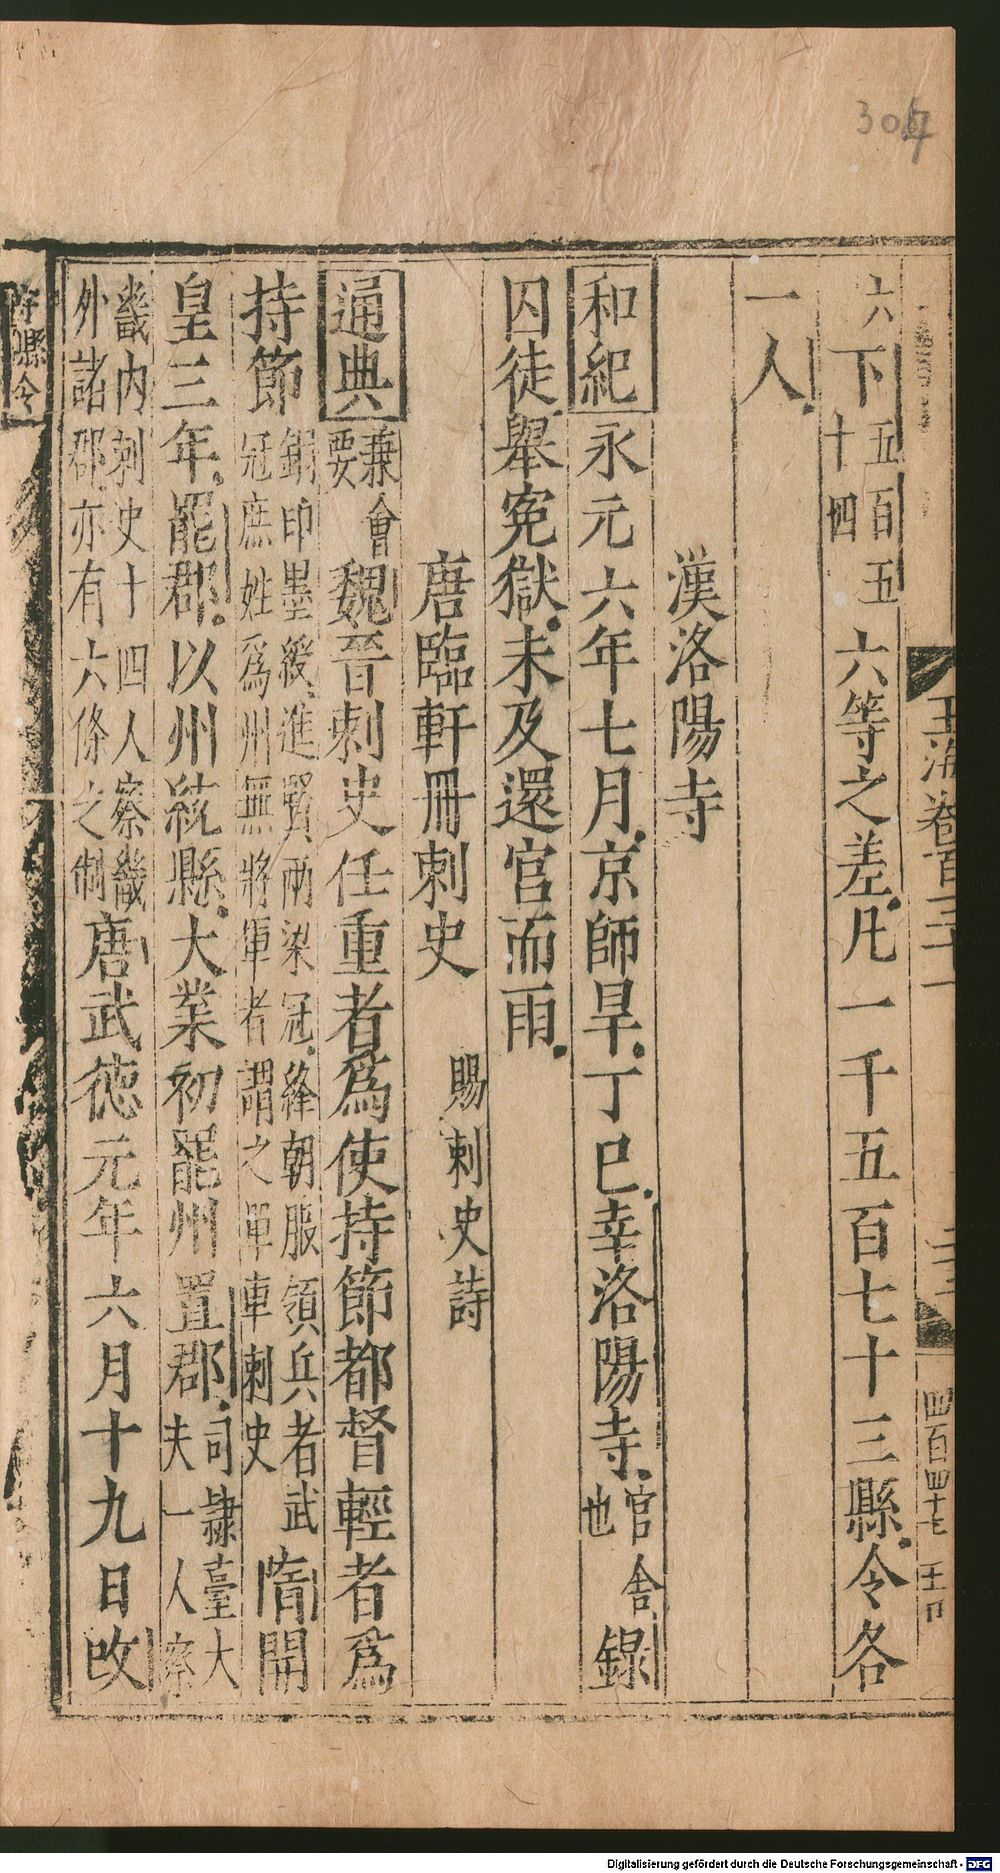 304
玉海卷百三十一
四百四十七
六下五百五十四六等之差凡一千五百七十三縣令各
一人
漢洛陽寺
和紀永元六年七月京師旱丁巳幸洛陽寺官舍也錄
囚徒舉冤獄未及還官而雨
唐臨軒冊刺史 賜刺史詩
通典兼會要魏晉刺史任重者為使持節都督輕者為
持節銅印墨綬進賢兩梁冠絳朝服領兵者武冠庶姓為州無將軍者謂之單車刺史隋開
皇三年罷郡以州統縣大業初罷州置郡司隸臺大夫一人察
畿內刺史十四人察畿外諸郡亦有六條之制唐武德元年六月十九日改
縣令
Digitalisierung gefördert durch die Deutsche Forschungsgemeinschaft - DFG